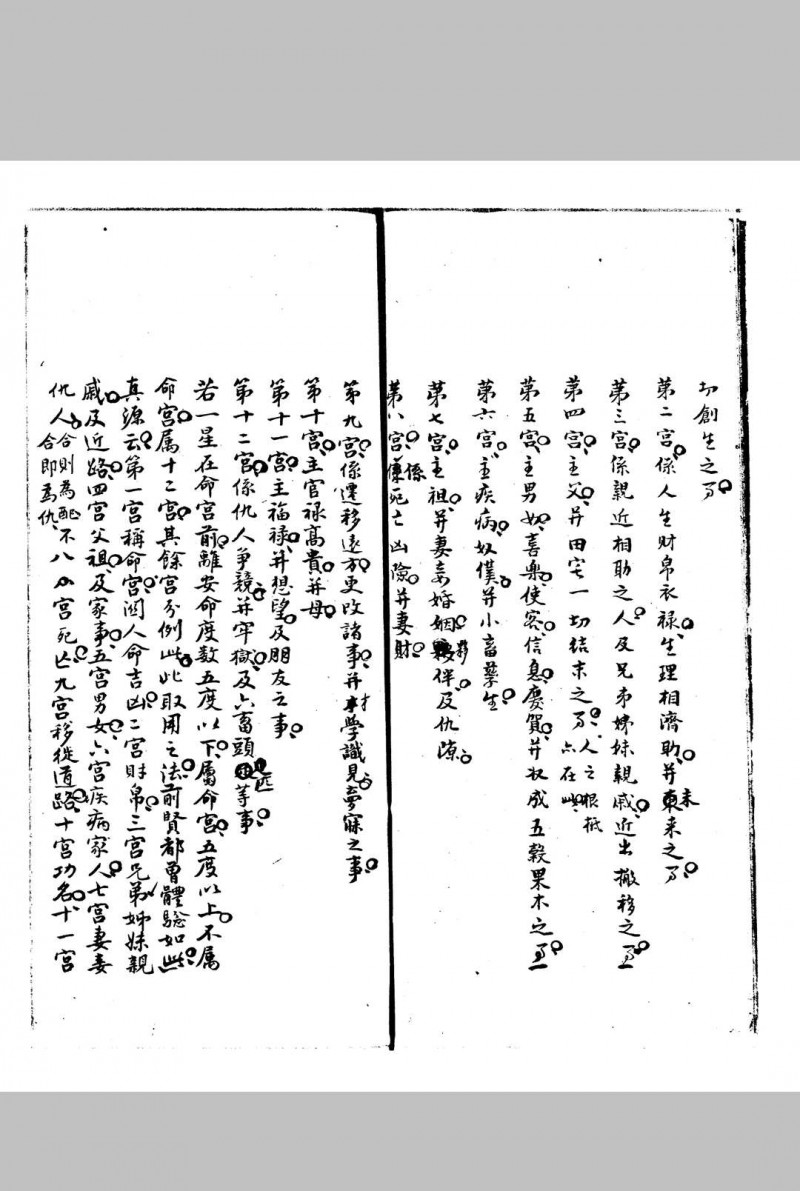 切創生之事
第二宮係人生財帛衣祿生理相濟助并未来之事
第三宮係親近相助之人及兄弟姊妹親戚近出搬移之事
第四宮主父并田宅一切結末之事人之根柢亦在此
第五宮主男女喜樂使客信息慶賀并收成五穀果木之事
第六宮主疾病奴僕并小畜孳生
第七宮主祖并妻妾婚姻夥伴及仇讐
第八宮係死亡凶險并妻財
第九宮係遷移遠方更改諸事并才學識見夢寐之事
第十宮主官禄高貴并母
第十一宮主福禄并想望及朋友之事
第十二宮係仇人争競并牢獄及六畜頭匹等事
若一星在命宮前離安命度数五度以下属命宮五度以上不属
命宮属十二宮其餘宮分例此此取用之法前賢都曾體驗如此
真源云第一宮稱命宮関人命吉凶二宮財帛三宮兄弟姊妹親
戚及近路四宮父祖及家事五宮男女六宮疾病家人七宮妻妾
仇人合則為配不合即為仇八宮死亡九宮移徙道路十宮功名十一宮